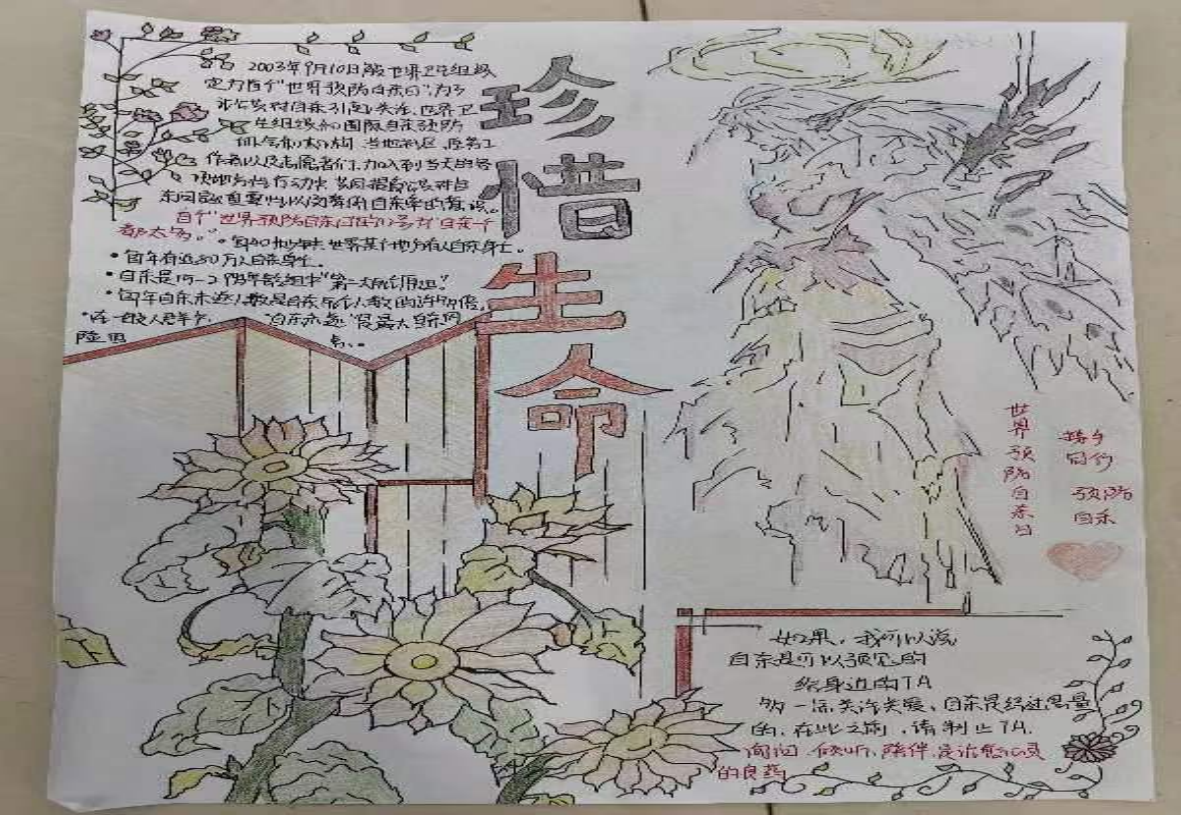 2003年9月10日被世界卫生组织
定为首个“世界预防自杀日”,为了
让公众对自杀引起关注,世界卫
生组织和国际自杀预防
作者以及志愿者们,加入到当天的各
项地方性行动中,共同提高公众对自
杀问题重要性以及降低自杀率的意识。
首个“世界预防自杀日”推出口号为“自杀一个
都太多。”
•每40秒
世界某个地方有人自杀身亡。
•每年有近80万人自杀身亡。
•自杀是15-29岁年龄组中“第二大死亡原因”
•每年自杀未遂人数是自杀死亡人数的许多倍,
•在一般人群中,“自杀未遂”是最大自杀风
险因素。
珍惜生命
世界预防自杀日
携手
同行
预防
自杀
如果,我们可以说
自杀是可以预见的
给身边的TA
多一点关注关爱、自杀是经过思量
的,在此之前,请制止TA.
询问、倾听、陪伴、是治愈心灵
的良药